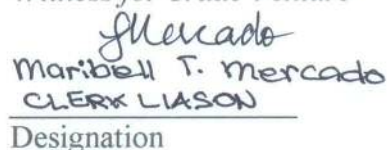 JMercado
Maribell T. Mercado
CLERK LIASON
Designation